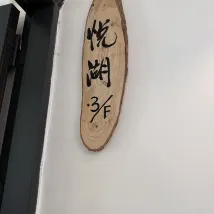 悦
湖
3/F